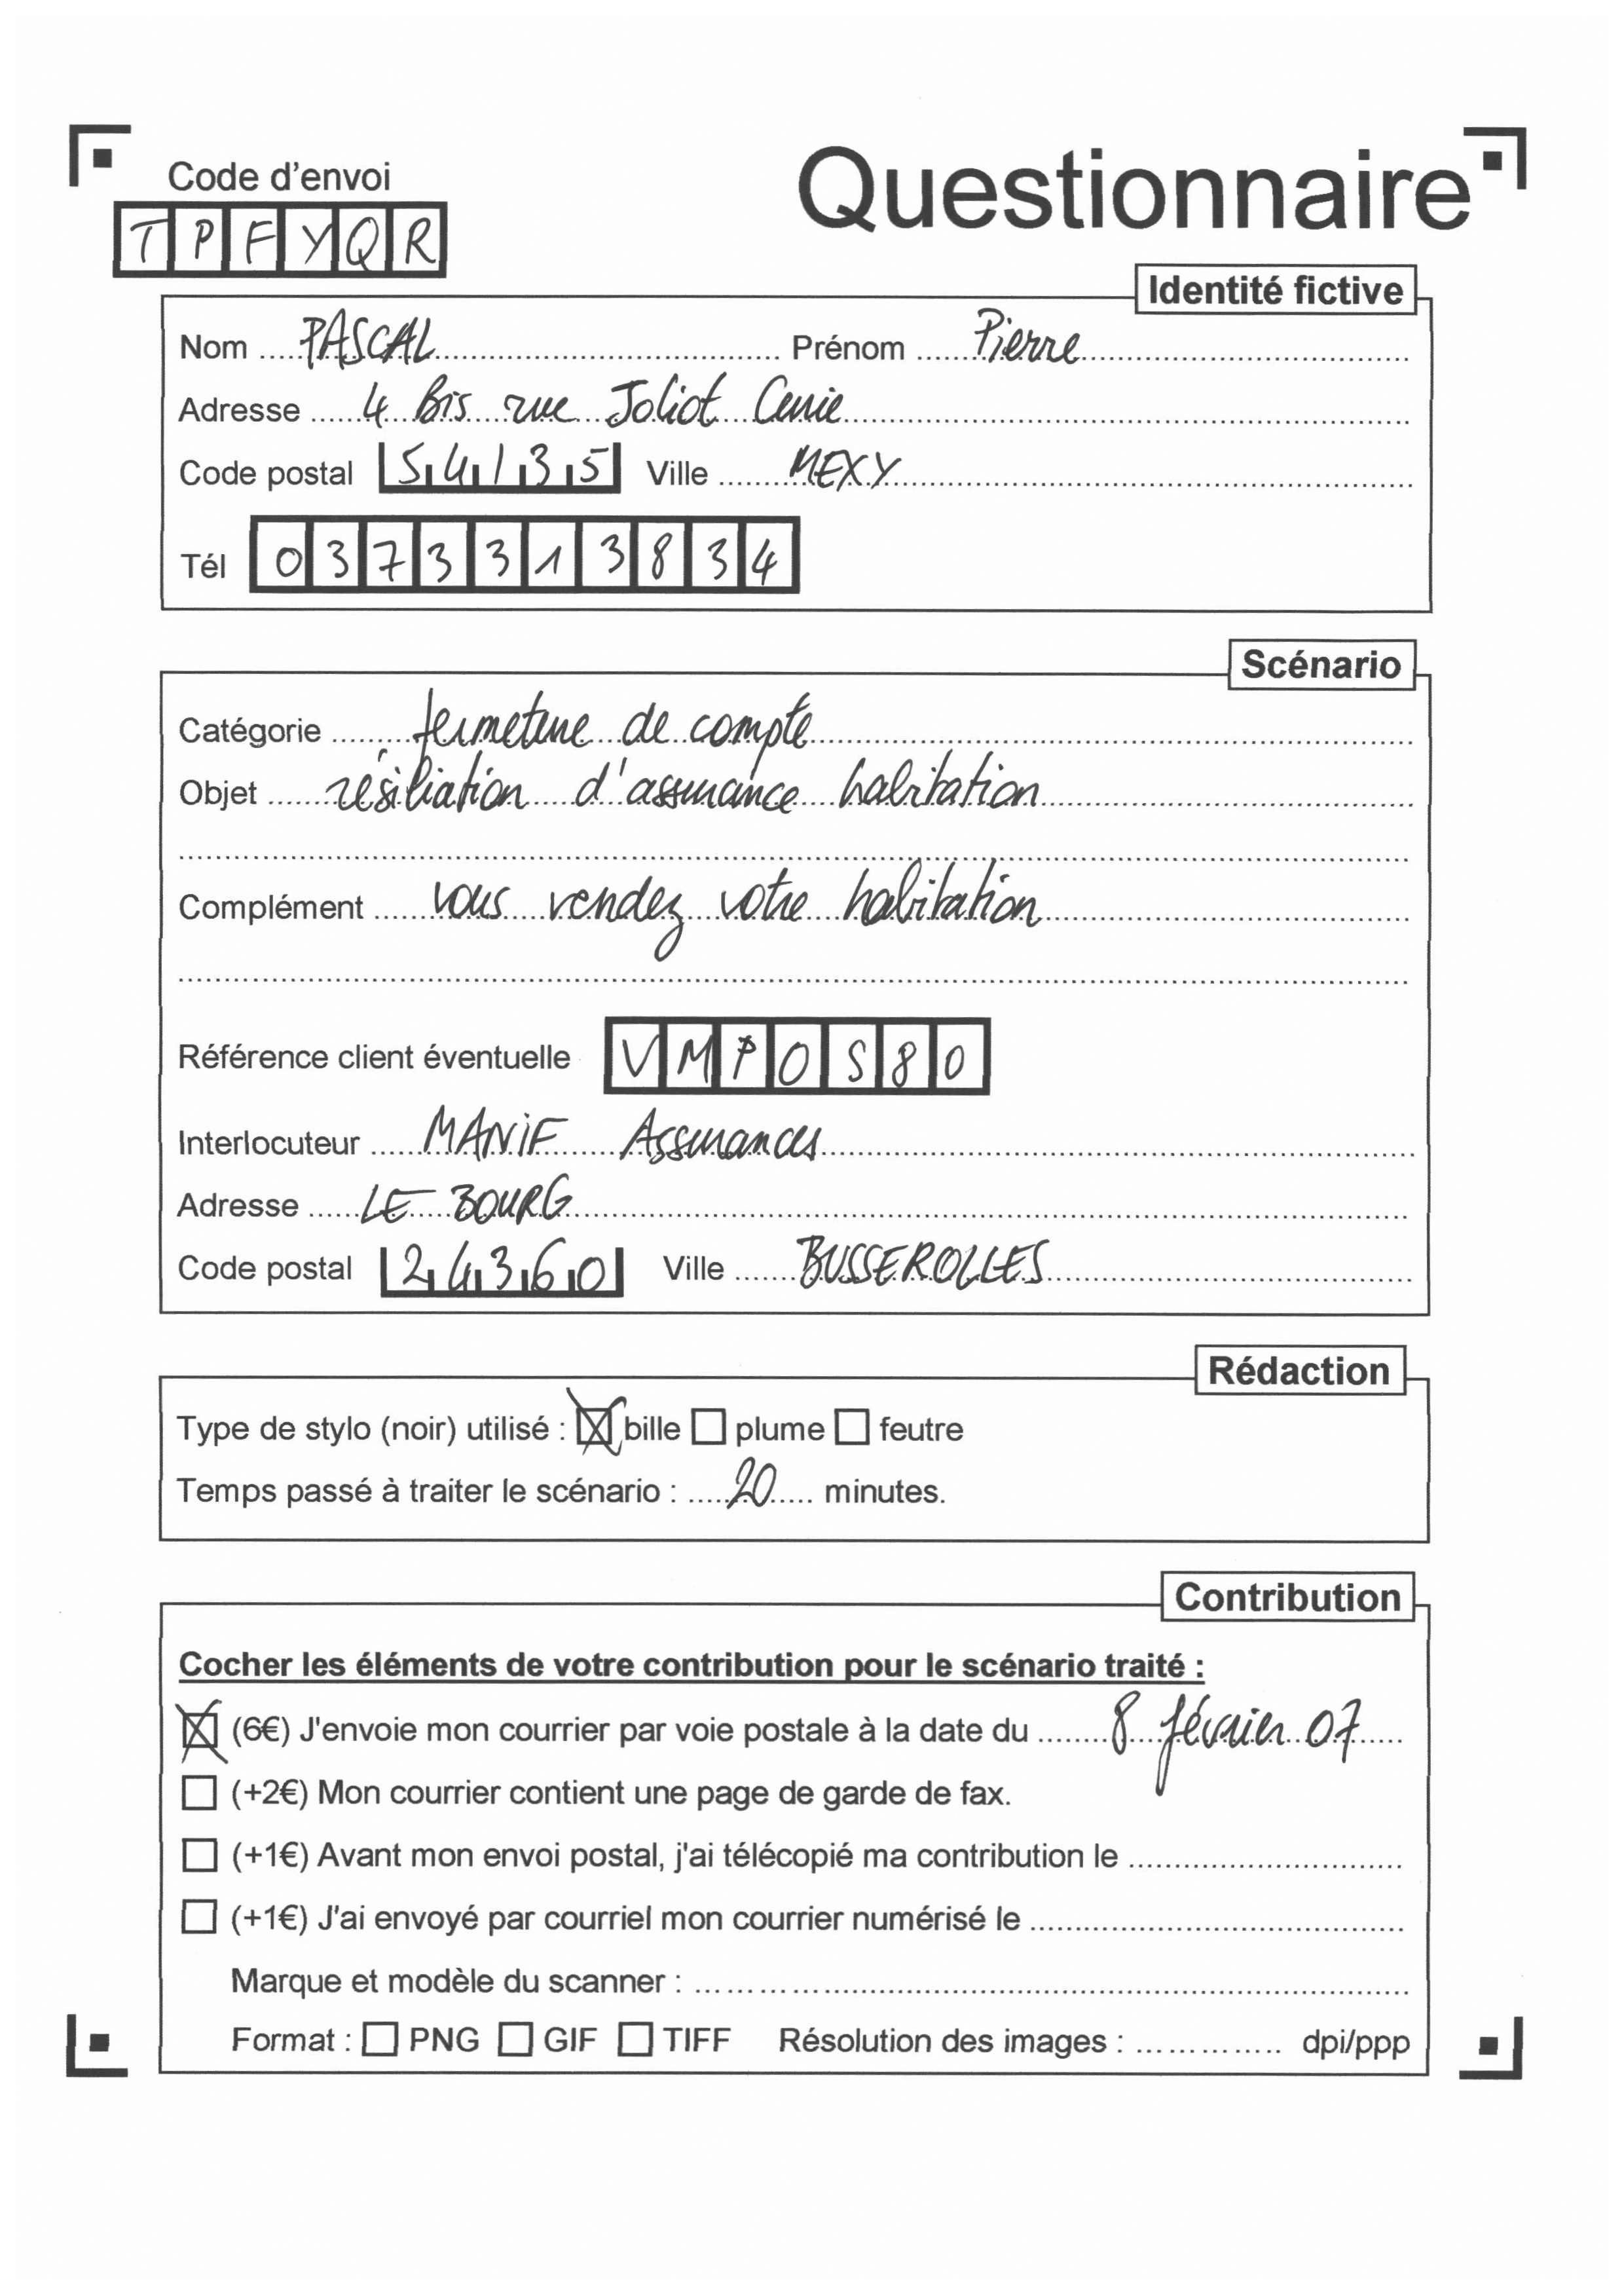 Code d'envoi
Questionnaire
TPFYQR
Identité fictive
Nom PASCAL Prénom Pierre
Adresse 4 Bis rue Joliot Curie
Code postal 54135 Ville MEXY
Tél 0373313834
Scénario
Catégorie fermeture de compte
Objet résiliation d'assurance habitation
Complément vous vendez votre habitation
Référence client éventuelle VMPOS80
Interlocuteur MANIF Assurances
Adresse LE BOURG
Code postal 24360 Ville BUSSEROLLES
Rédaction
Type de stylo (noir) utilisé : ☒ bille ☐ plume ☐ feutre
Temps passé à traiter le scénario : 20 minutes.
Contribution
Cocher les éléments de votre contribution pour le scénario traité :
☒ (6€) J'envoie mon courrier par voie postale à la date du 8 février 07
☐ (+2€) Mon courrier contient une page de garde de fax.
☐ (+1€) Avant mon envoi postal, j'ai télécopié ma contribution le
☐ (+1€) J'ai envoyé par courriel mon courrier numérisé le
Marque et modèle du scanner :
Format : ☐ PNG ☐ GIF ☐ TIFF Résolution des images : dpi/ppp